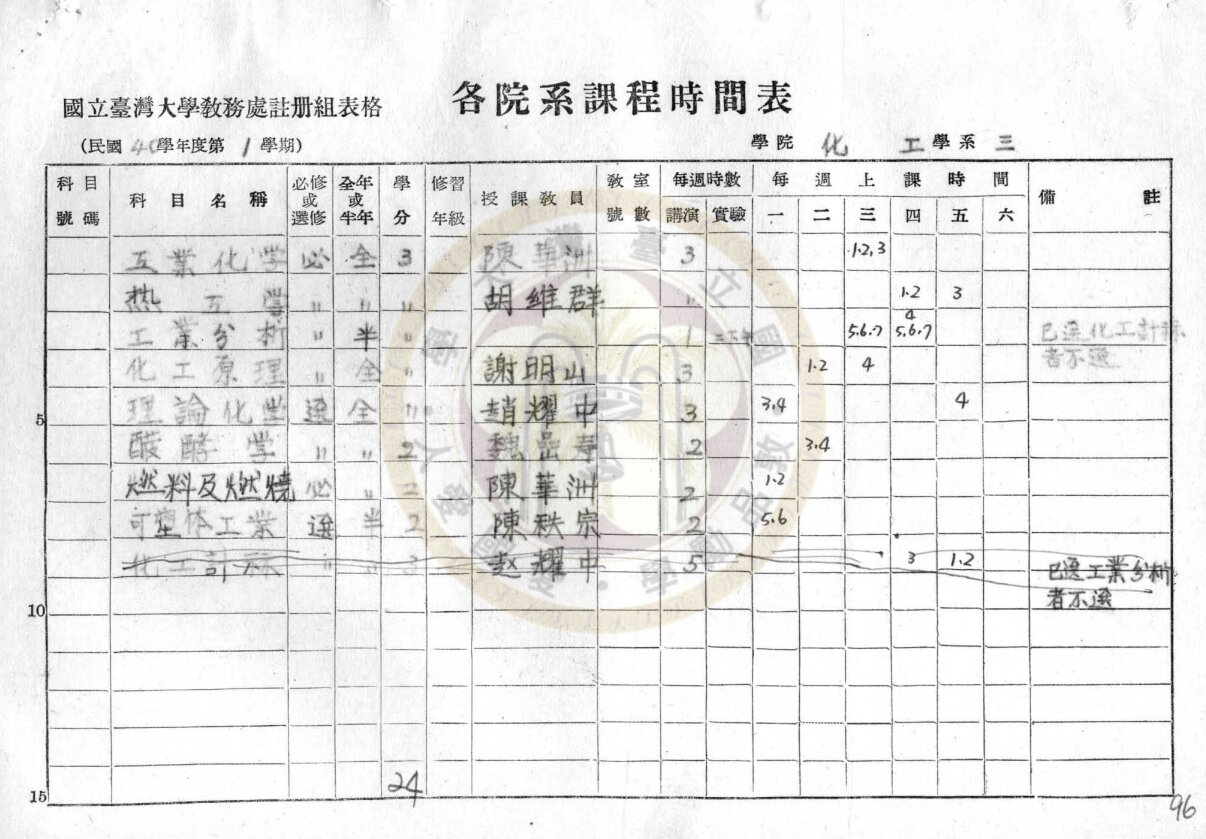 各院系課程時間表
國立臺灣大學教務處註册組表格
(民國 40學年度第 1 學期) 學院 化 工學系 三
科目號碼 科目名稱 必修或選修 全年或半年 學分 修習年級 授課教員 教室號數 每週時數 講演 實驗 每週上課時間 一 二 三 四 五 六 備註
工業化学 必 全 3 陳華洲 3 1.2,3
热工学 〃 〃 〃 胡維群 〃 1.2 3
工業分析 〃 半 〃 1 5.6.7 4 5.6.7 已選化工計祘者不選
化工原理 〃 全 〃 謝明山 3 1.2 4
5 理論化学 選 全 〃 趙耀中 3 3.4 4
醱酵学 〃 〃 2 魏嵒寿 2 3.4
燃料及燃燒 必 〃 2 陳華洲 2 1.2
可塑体工業 選 半 2 陳秩宗 2 5.6
化工計祘 〃 〃 3 赵耀中 5 3 1.2 已選工業分析者不選
10
15 24
96